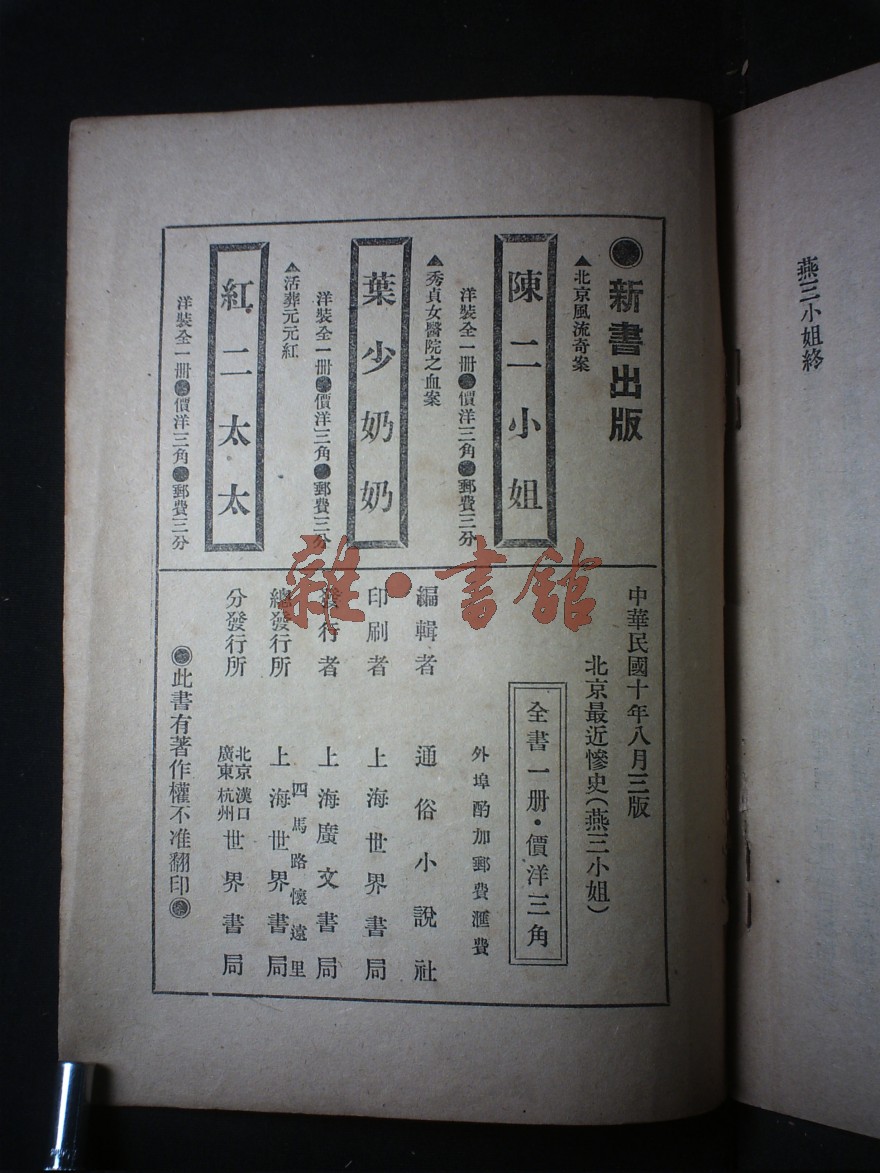 燕三小姐終
●新書出版
▲北京風流奇案
陳二小姐
洋裝全一冊●價洋三角●郵費三分
▲秀貞女醫院之血案
葉少奶奶
洋裝全一冊●價洋三角●郵費三分
▲活葬元元紅
紅二太太
洋裝全一冊●價洋三角●郵費三分
中華民國十年八月三版
北京最近慘史(燕三小姐)
全書一册·價洋三角
外埠酌加郵費滙費
編輯者 通俗小說社
印刷者 上海世界書局
發行者 上海廣文書局
四馬路懷遠里
總發行所 上海世界書局
分發行所 北京漢口廣東杭州世界書局
●此書有著作權不准翻印●
雜·書館